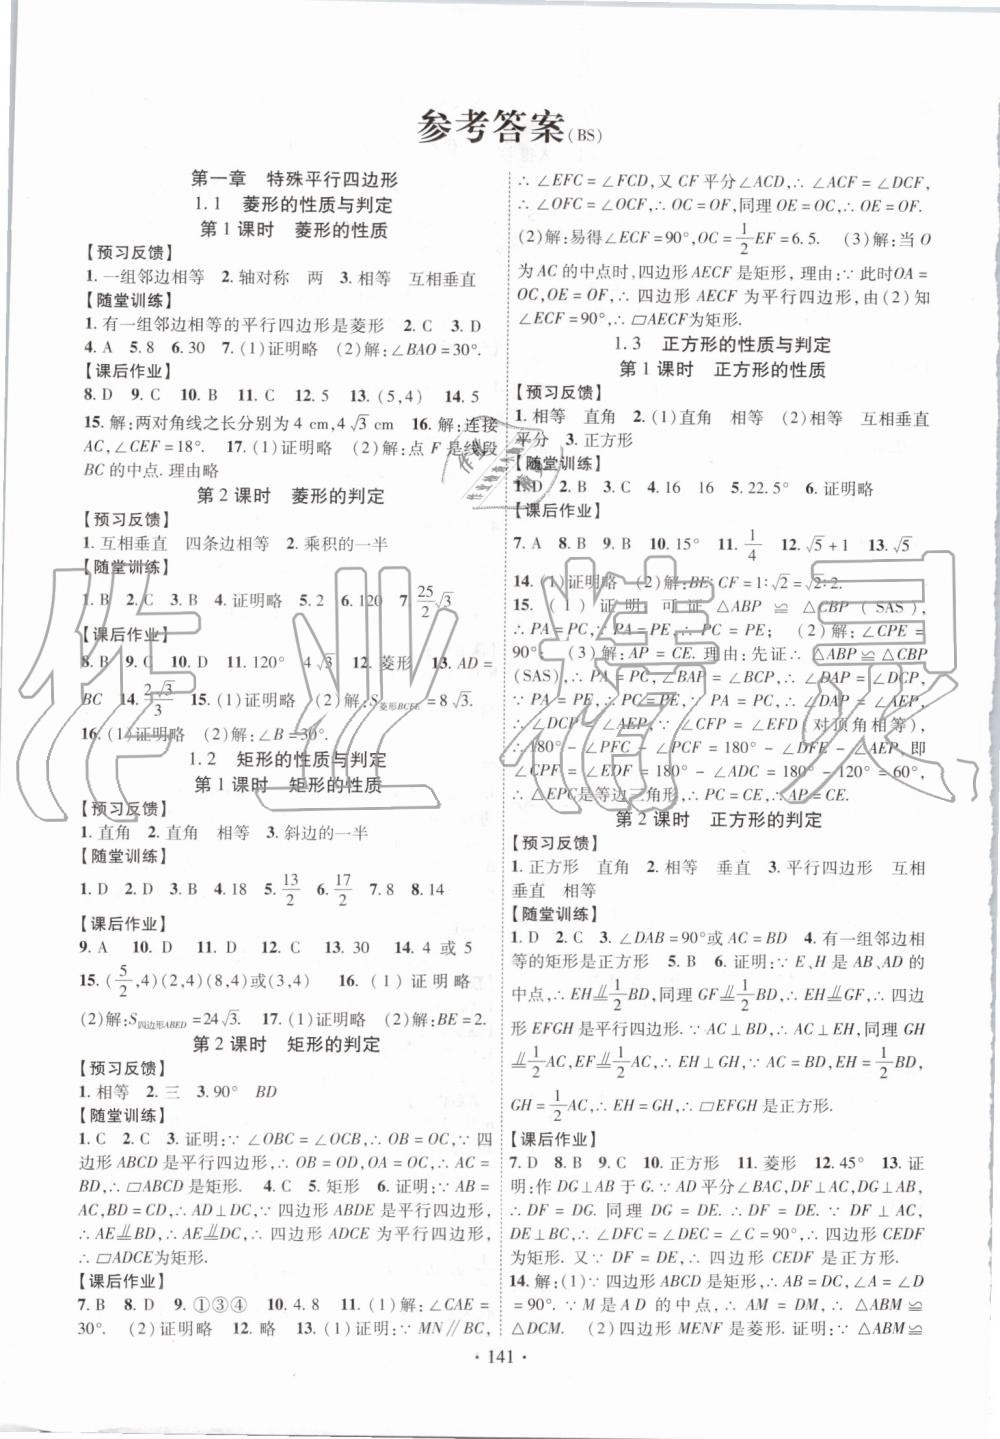 参考答案(BS)
第一章 特殊平行四边形
1.1 菱形的性质与判定
第1课时 菱形的性质
【预习反馈】
1.一组邻边相等 2.轴对称 两 3.相等 互相垂直
【随堂训练】
1.有一组邻边相等的平行四边形是菱形 2.C 3.D
4.A 5.8 6.30 7.(1)证明略 (2)解:∠BAO=30°.
【课后作业】
8.D 9.C 10.B 11.C 12.B 13.(5,4) 14.5
15.解:两对角线之长分别为4 cm,4√3 cm 16.解:连接
AC,∠CEF=18°. 17.(1)证明略 (2)解:点F是线段
BC的中点.理由略
第2课时 菱形的判定
【预习反馈】
1.互相垂直 四条边相等 2.乘积的一半
【随堂训练】
1.B 2.C 3.B 4.证明略 5.2 6.120 7.25/2√3
【课后作业】
8.B 9.C 10.D 11.120° 4√3 12.菱形 13.AD=
BC 14.2√3/3 15.(1)证明略 (2)解:S菱形BCFE=8√3.
16.(1)证明略 (2)解:∠B=30°.
1.2 矩形的性质与判定
第1课时 矩形的性质
【预习反馈】
1.直角 2.直角 相等 3.斜边的一半
【随堂训练】
1.D 2.D 3.B 4.18 5.13/2 6.17/2 7.8 8.14
【课后作业】
9.A 10.D 11.D 12.C 13.30 14.4或5
15.(5/2,4)(2,4)(8,4)或(3,4) 16.(1)证明略
(2)解:S四边形ABED=24√3. 17.(1)证明略 (2)解:BE=2.
第2课时 矩形的判定
【预习反馈】
1.相等 2.三 3.90° BD
【随堂训练】
1.C 2.C 3.证明:∵∠OBC=∠OCB,∴OB=OC,∵四
边形ABCD是平行四边形,∴OB=OD,OA=OC,∴AC=
BD,∴▱ABCD是矩形. 4.C 5.矩形 6.证明:∵AB=
AC,BD=CD,∴AD⊥DC,∵四边形ABDE是平行四边
形,∴AE∥=BD,∴AE∥=DC,∴四边形ADCE为平行四边形,
∴▱ADCE为矩形.
【课后作业】
7.B 8.D 9.①③④ 10.4.8 11.(1)解:∠CAE=
30°. (2)证明略 12.略 13.(1)证明:∵MN∥BC,
∴∠EFC=∠FCD,又CF平分∠ACD,∴∠ACF=∠DCF,
∴∠OFC=∠OCF,∴OC=OF,同理OE=OC,∴OE=OF.
(2)解:易得∠ECF=90°,OC=1/2EF=6.5. (3)解:当O
为AC的中点时,四边形AECF是矩形,理由:∵此时OA=
OC,OE=OF,∴四边形AECF为平行四边形,由(2)知
∠ECF=90°,∴▱AECF为矩形.
1.3 正方形的性质与判定
第1课时 正方形的性质
【预习反馈】
1.相等 直角 2.(1)直角 相等 (2)相等 互相垂直
平分 3.正方形
【随堂训练】
1.D 2.B 3.C 4.16 16 5.22.5° 6.证明略
【课后作业】
7.A 8.B 9.B 10.15° 11.1/4 12.√5+1 13.√5
14.(1)证明略 (2)解:BE:CF=1:√2=√2:2.
15.(1)证明:可证△ABP≌△CBP(SAS),
∴PA=PC,∵PA=PE,∴PC=PE; (2)解:∠CPE=
90°; (3)解:AP=CE.理由:先证∴△ABP≌△CBP
(SAS),∴PA=PC,∠BAP=∠BCP,∴∠DAP=∠DCP,
∵PA=PE,∴PC=PE,∵PA=PC,∴∠DAP=∠AEP,
∴∠DCP=∠AEP,∵∠CFP=∠EFD(对顶角相等),
∴180°-∠PFC-∠PCF=180°-∠DFE-∠AEP,即
∠CPF=∠EDF=180°-∠ADC=180°-120°=60°,
∴△EPC是等边三角形,∴PC=CE,∴AP=CE.
第2课时 正方形的判定
【预习反馈】
1.正方形 直角 2.相等 垂直 3.平行四边形 互相
垂直 相等
【随堂训练】
1.D 2.C 3.∠DAB=90°或AC=BD 4.有一组邻边相
等的矩形是正方形 5.B 6.证明:∵E、H是AB、AD的
中点,∴EH∥=1/2BD,同理GF∥=1/2BD,∴EH∥=GF,∴四边
形EFGH是平行四边形.∵AC⊥BD,∴EH⊥AC,同理GH
∥=1/2AC,EF∥=1/2AC,∴EH⊥GH,∵AC=BD,EH=1/2BD,
GH=1/2AC,∴EH=GH,∴▱EFGH是正方形.
【课后作业】
7.D 8.B 9.C 10.正方形 11.菱形 12.45° 13.证
明:作DG⊥AB于G.∵AD平分∠BAC,DF⊥AC,DG⊥AB,
∴DF=DG.同理DG=DE.∴DF=DE.∵DF⊥AC,
DE⊥BC,∴∠DFC=∠DEC=∠C=90°,∴四边形CEDF
为矩形.又∵DF=DE,∴四边形CEDF是正方形.
14.解:(1)∵四边形ABCD是矩形,∴AB=DC,∠A=∠D
=90°.∵M是AD的中点,∴AM=DM,∴△ABM≌
△DCM. (2)四边形MENF是菱形.证明:∵△ABM≌
· 141 ·
作业精灵